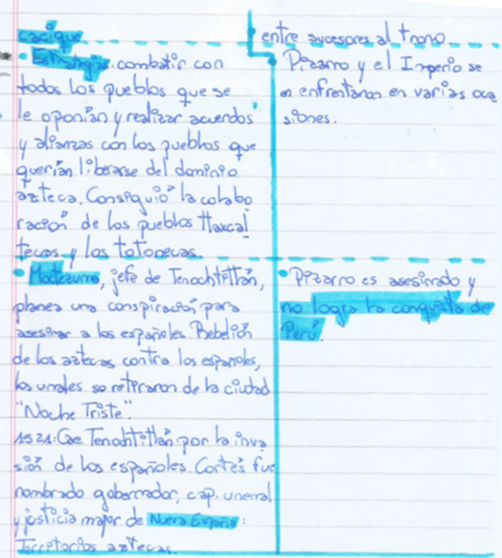 cacique
• Estrategia: combatir con
todos los pueblos que se
le oponían y realizar acuerdos
y alianzas con los pueblos que
querían liberarse del dominio
azteca. Consiguió la colabo
ración de los pueblos tlaxcal
tecas y los totonecas.
• Moctezuma, jefe de Tenochtitlán,
planea una conspiración para
asesinar a los españoles. Rebelión
de los aztecas contra los españoles,
los cuales se retiraron de la ciudad
"Noche Triste".
1521: Cae Tenochtitlán por la inva
sión de los españoles. Cortés fue
nombrado gobernador, cap.
y justicia mayor de Nueva España:
Territorios aztecas.
entre sucesores al trono.
Pizarro y el Imperio se
enfrentaron en varias oca
siones.
• Pizarro es asesinado y
no logra la conquista de
Perú.